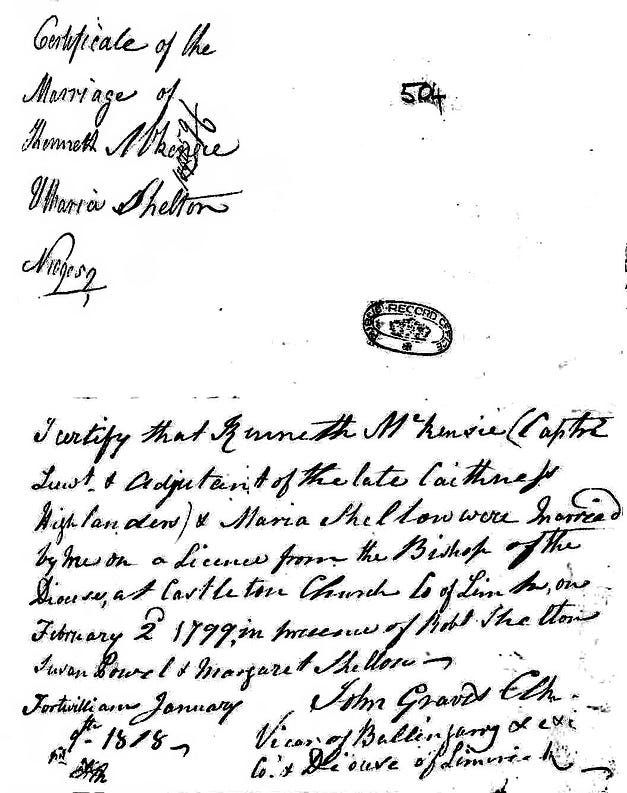 Certificate of the
Marriage of
Kenneth McKenzie
Maria Shelton
504
PUBLIC RECORD OFFICE
I certify that Kenneth McKensie (Captn
Lieut. & Adjutant of the late Caithness
Highlanders) & Maria Shelton were Married
by me on a Licence from the Bishop of the
Diocese, at Castleton Church Co of Limk, on
February 2d 1799, in presence of Robt Shelton
Susan Powel & Margaret Shelton
Fortwilliam January
9th 1818
John Graves Clk
Vicar of Ballingarry &
Co. & Diocese of Limerick